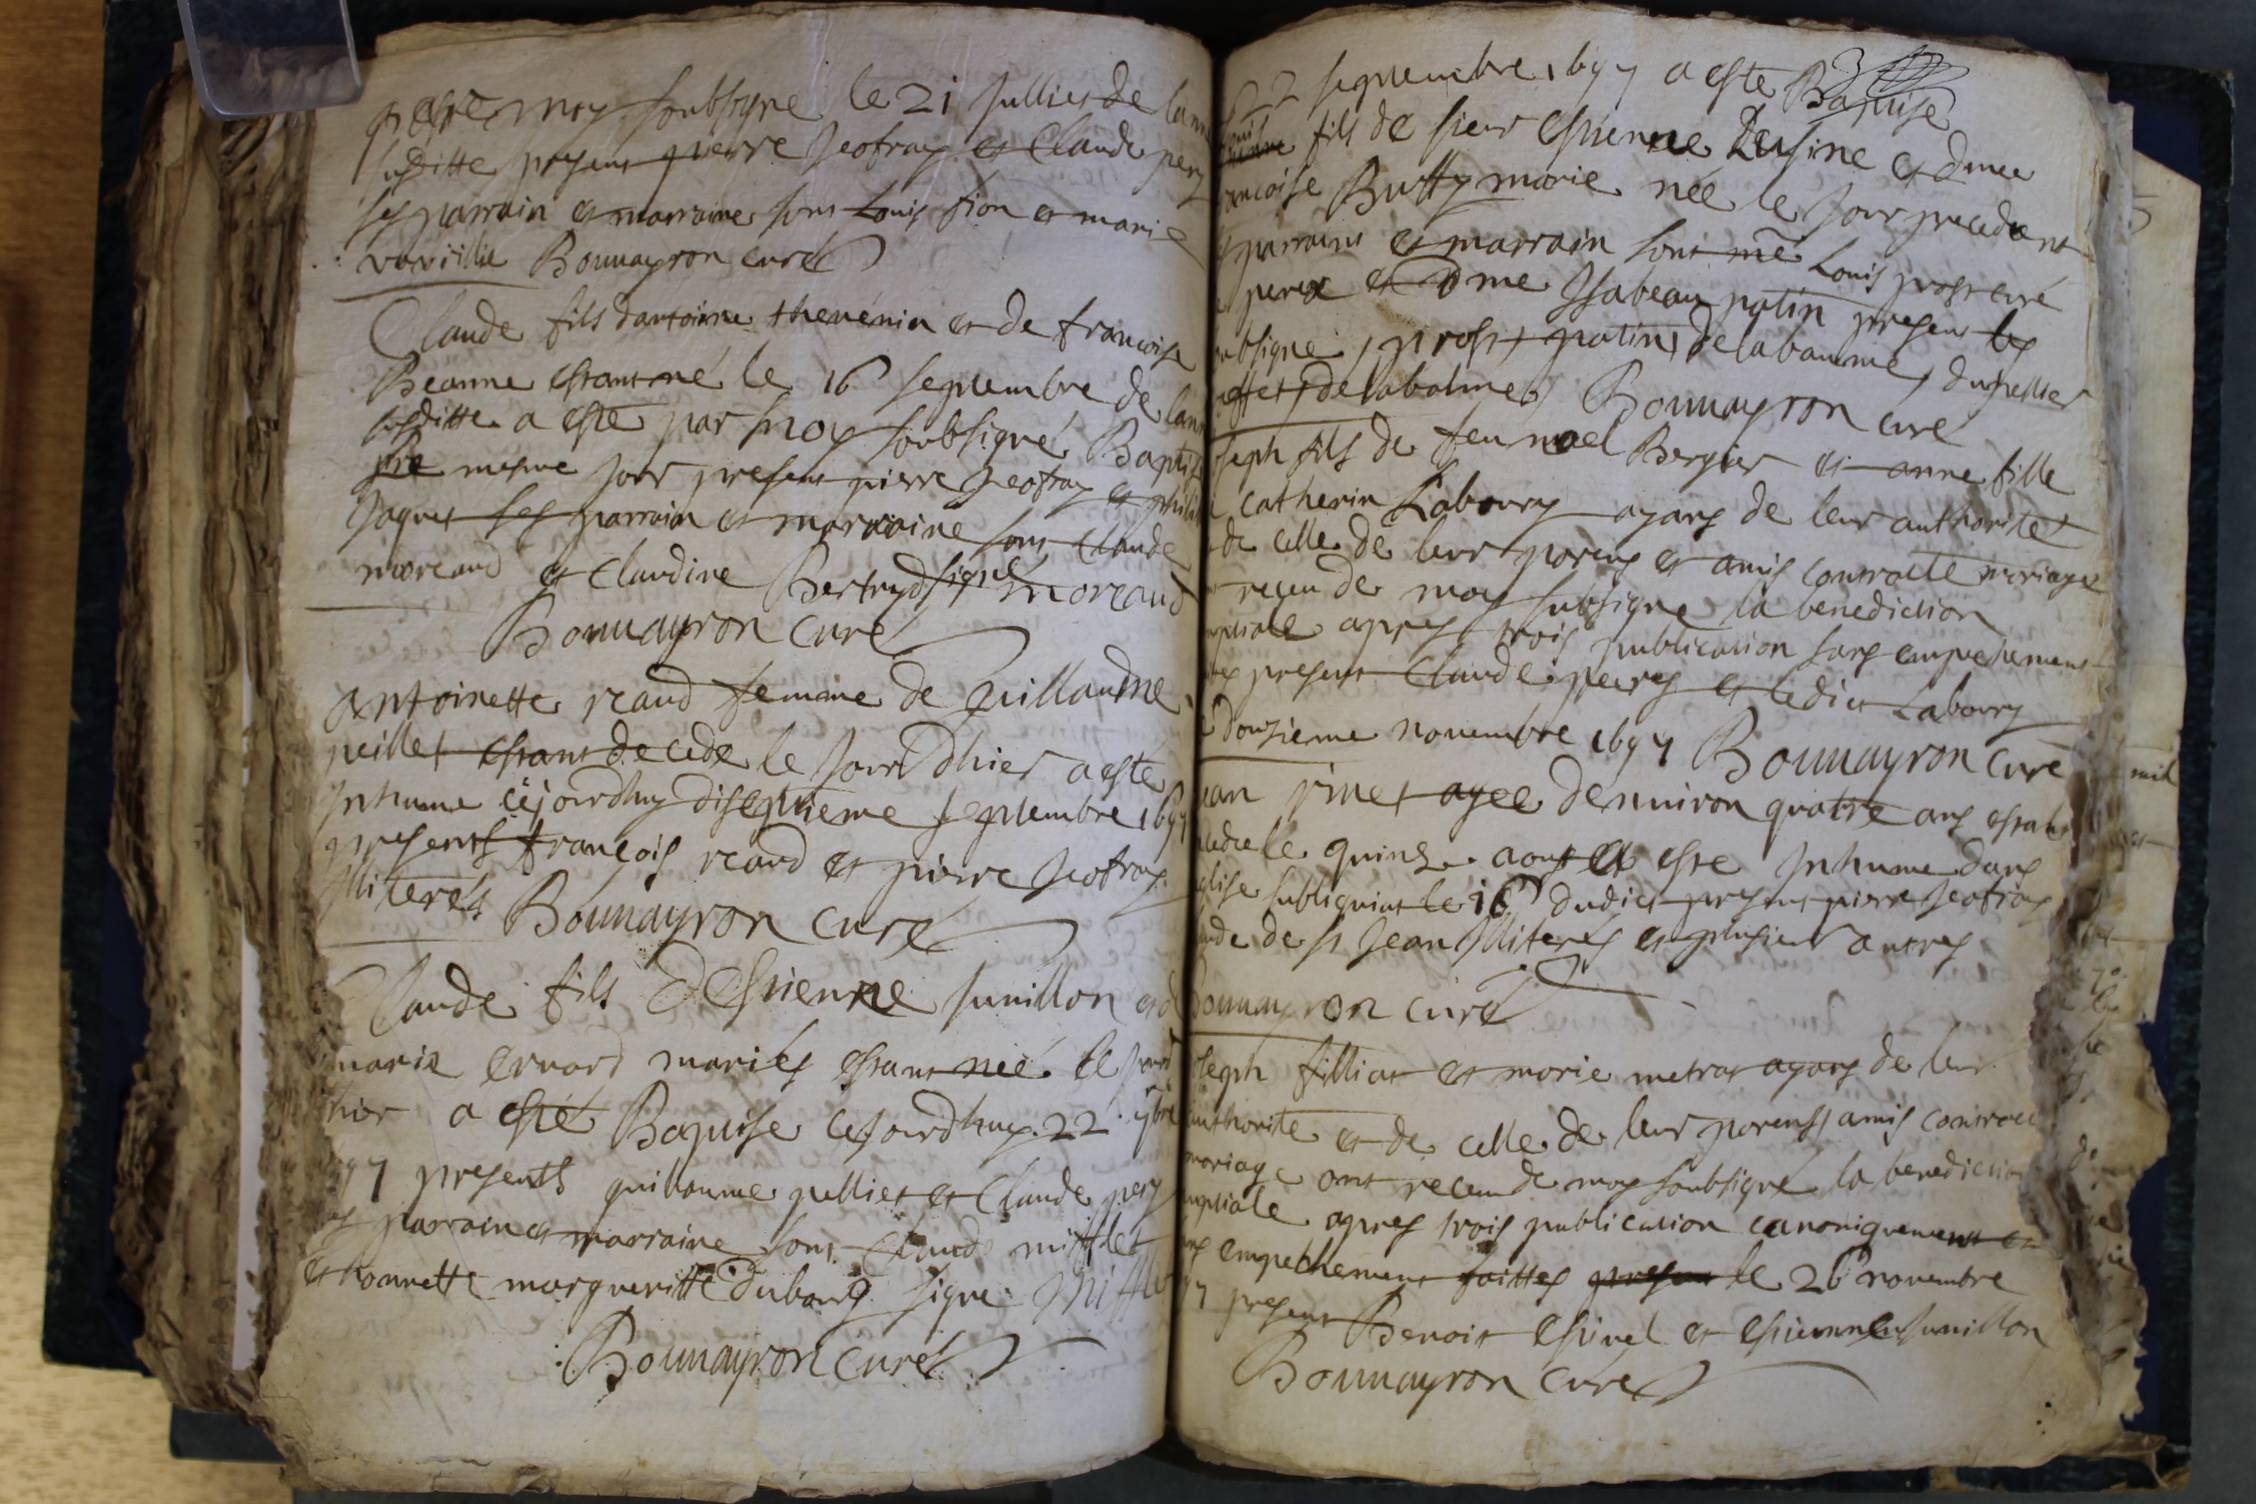 par moy soubsigné le 21 Julliet de lann
susditte presens pierre Jeofray et Claude pery
ses parrain et marraine sont Louis fion et marie
Bonnayron curé
Claude fils dantoinne thevenin et de francoise
Beanne estant né le 16 septembre de lann
susditte a esté par moy soubsigné Baptis
le mesme jour presens pierre Jeofray et phili
Jaquet ses parrain et marraine sont Claude
moreaud et Claudine Bertryd signé moreaud
Bonnayron curé
Antoinette reaud femme de Guillaudme
peillet estant decede le jour dhier a esté
Inhume cejourdhuy diseptieme septembre 1697
presents françois reaud et pierre Jeofray
Illiterés Bonnayron curé
Claude fils DEstienne Junillon et d
marie ervard mariés estant né le jourd
hier a esté Baptise cejourdhuy 22 7bre
97 presents guillaume pelliet et Claude pery
ses parrain et marraine sont Claude mifflet
et honnette margueritte dubourg signe Miffle
Bonnayron curé
22 septembre 1697 a esté Baptisé
fils de sieur Estienne Dusine et dme
ancoise Buffy marie née le jour precedent
parrains et marrain sont mē Louis prost curé
perex et Dme Isabeau patin presens les
ubsigné, prost, patin, Delabaume, dupellier
effet, delabalme, Bonnayron curé
oseph fils de feu noel Bergier et anne fille
Catherin Laboury ayans de leur authorité
de celle de leur parens et amis contracte mariage
receu de moy subsigné la benediction
nuptiale apres trois publication sans empechement
presens Claude peirey et ledict Laboury
Douzieme novembre 1697 Bonnayron curé
ean pinet agee denuiron quatre ans estant
decede le quinze aoust a este Inhume dans
glise subsequint le 16 dudict presens pierre Jeofray
aude de st Jean Illiterés et plusieur autres
Bonnayron curé
oseph filliat et marie metras ayans de leur
authorite et de celle de leur parens amis contract
mariage ont receu de moy soubsigné la benediction
nuptiale apres trois publication canoniquement et
ans empechement faittes le 26 novembre
97 present Benoit Espinel et Estienne Junillon
Bonnayron curé